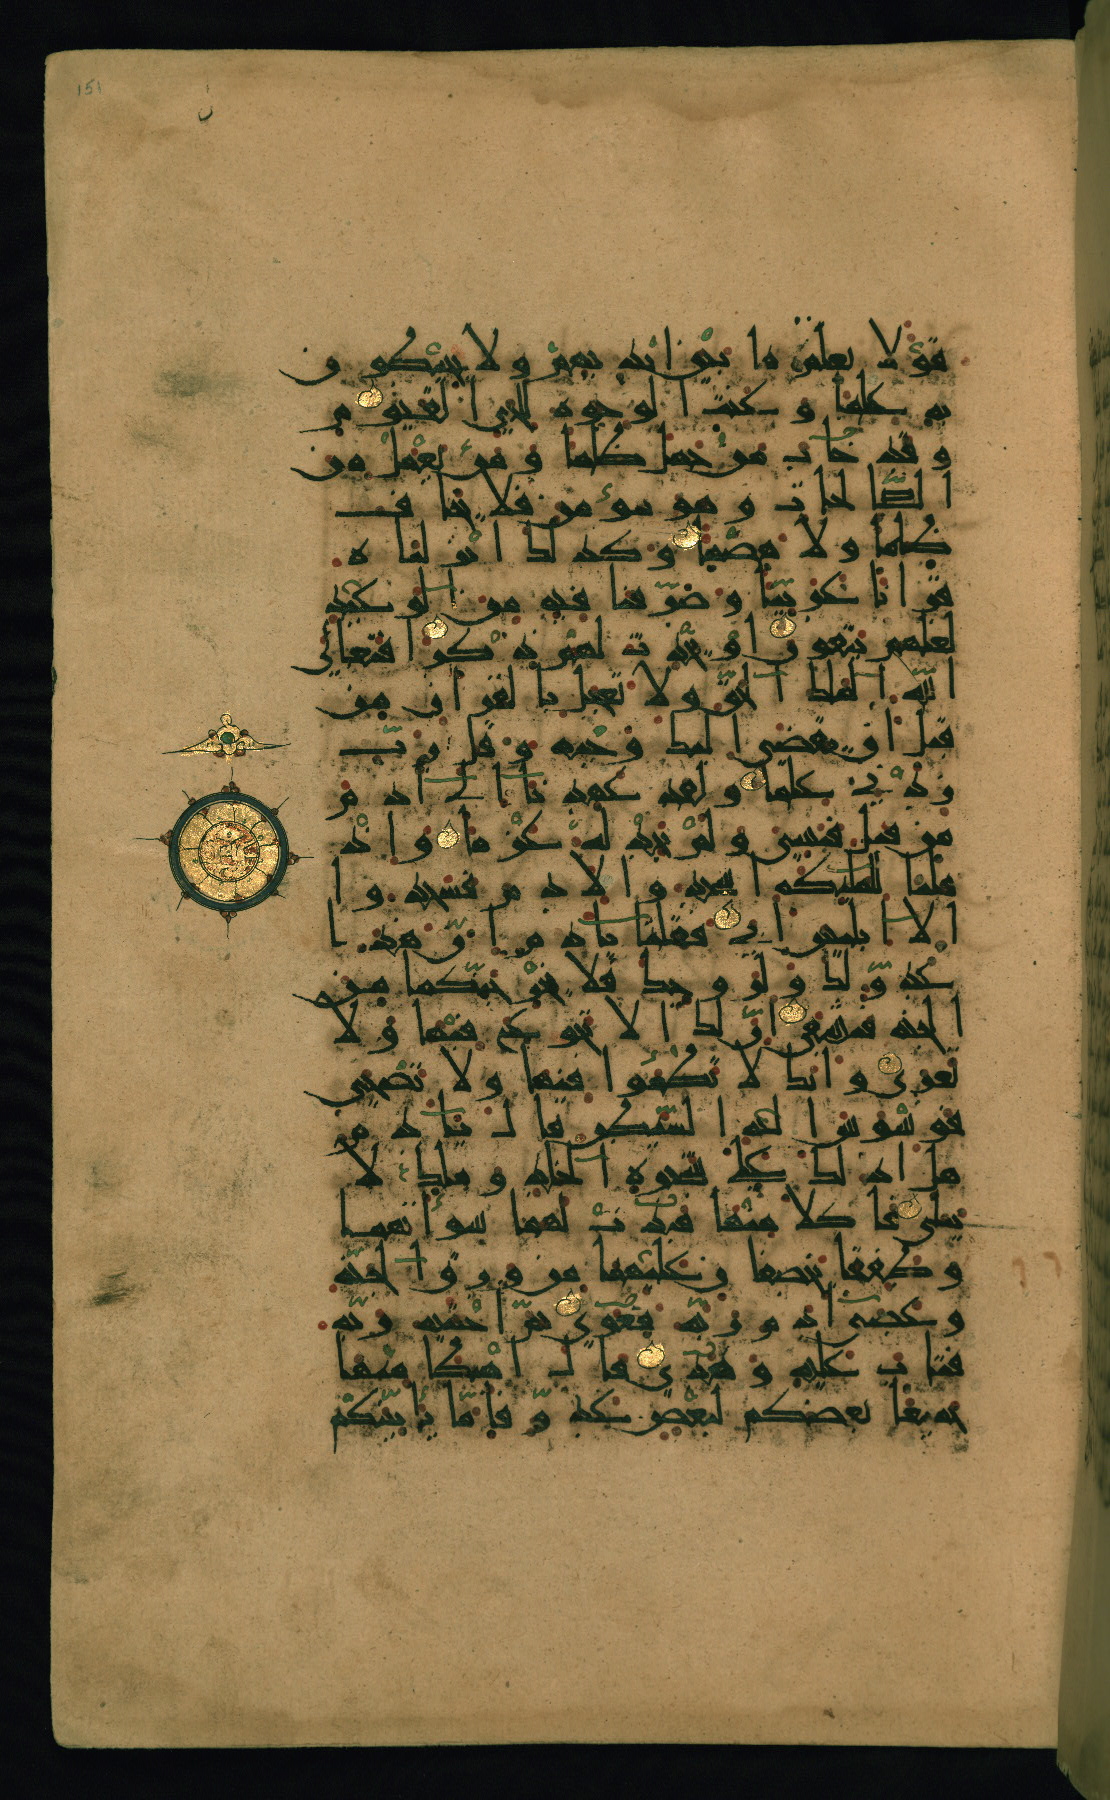 151
قولا يعلم ما بين ايديهم ولا يحيطون
به علما وعنت الوجوه للحي القيوم
وقد خاب من حمل ظلما ومن يعمل من
الصالحات وهو مؤمن فلا يخاف
ظلما ولا هضما وكذلك انزلناه
قرانا عربيا وصرفنا فيه من الوعيد
لعلهم يتقون او يحدث لهم ذكرا فتعالى
الله الملك الحق ولا تعجل بالقران من
قبل ان يقضى اليك وحيه وقل رب
زدني علما ولقد عهدنا الى ادم
من قبل فنسي ولم نجد له عزما واذ
قلنا للملئكة اسجدوا لادم فسجدوا
الا ابليس ابى فقلنا يادم ان هذا
عدو لك ولزوجك فلا يخرجنكما من
الجنة فتشقى ان لك الا تجوع فيها ولا
تعرى وانك لا تظمؤا فيها ولا تضحى
فوسوس اليه الشيطن قال يادم
هل ادلك على شجرة الخلد وملك لا
يبلى فاكلا منها فبدت لهما سواتهما
وطفقا يخصفان عليهما من ورق الجنة
وعصى ادم ربه فغوى ثم اجتبيه ربه
فتاب عليه وهدى قال اهبطا منها
جميعا بعضكم لبعض عدو فاما ياتينكم